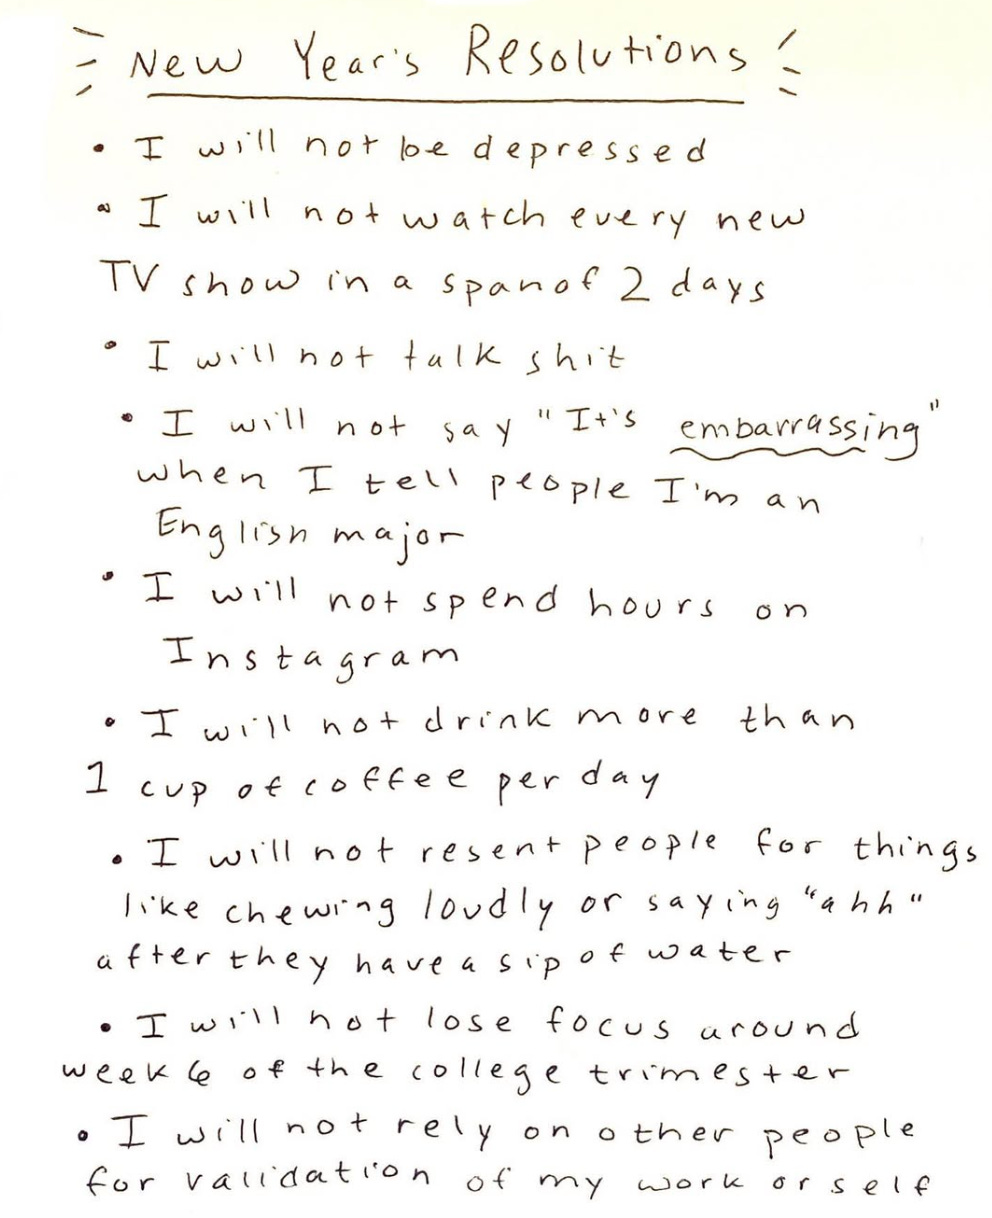 New Year's Resolutions
• I will not be depressed
• I will not watch every new
TV show in a span of 2 days
• I will not talk shit
• I will not say "It's embarrassing"
when I tell people I'm an
English major
• I will not spend hours on
Instagram
• I will not drink more than
1 cup of coffee per day
• I will not resent people for things
like chewing loudly or saying "ahh"
after they have a sip of water
• I will not lose focus around
week 6 of the college trimester
• I will not rely on other people
for validation of my work or self